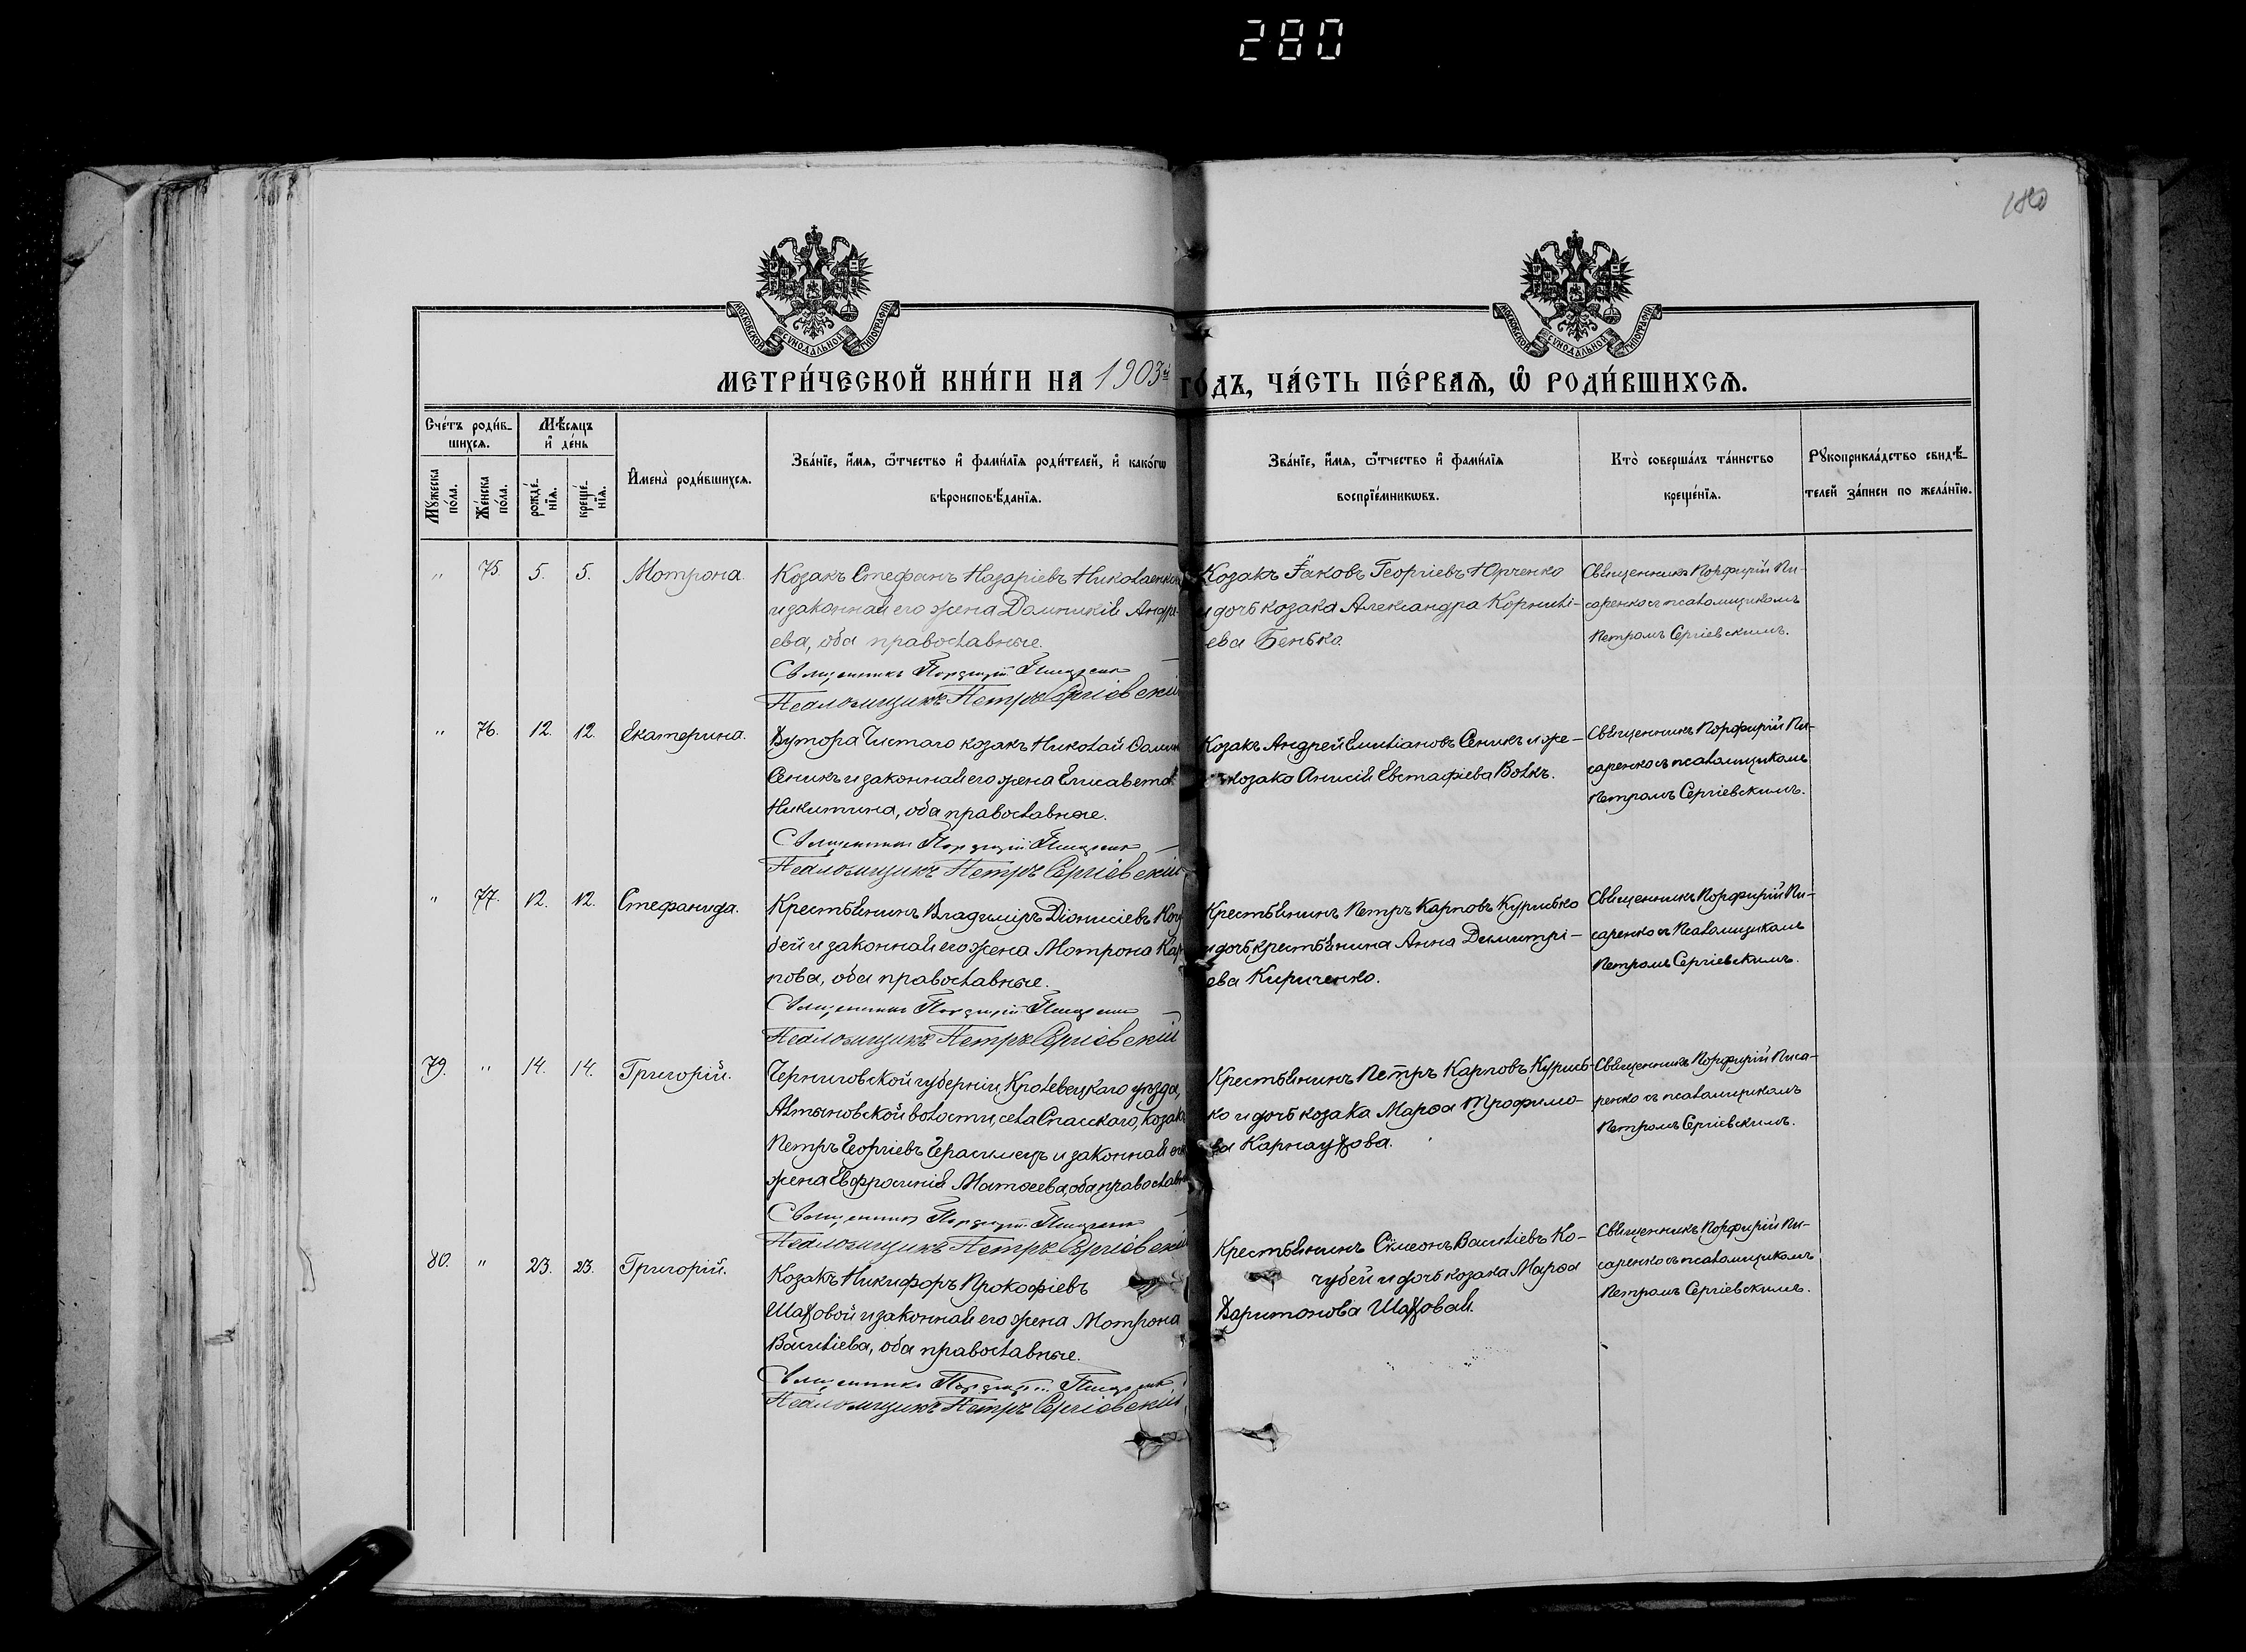 280
180
МОСКОВСКОЙ СѴНОДАЛЬНОЙ ТИПОГРАФІИ
МОСКОВСКОЙ СѴНОДАЛЬНОЙ ТИПОГРАФІИ
МЕТРИ́ЧЕСКОЙ КНИ́ГИ НА 1903й ГО́ДЪ, ЧА́СТЬ ПЕ́РВАѦ, Ѡ҆ РОДИ́ВШИХСѦ.
Сче́тъ роди́в-
шихсѧ.
Мѣ́сѧцъ
и҆ де́нь
Мꙋ́жеска по́ла.
Же́нска по́ла.
рожде́-
нїѧ.
креще́-
нїѧ.
И҆мена̀ роди́вшихсѧ.
Зва́нїе, и҆́мѧ, ѻ҆́тчество и҆ фами́лїѧ роди́телей, и҆ како́гѡ
вѣроисповѣ́данїѧ.
Зва́нїе, и҆́мѧ, ѻ҆́тчество и҆ фами́лїѧ
воспрїе́мникѡвъ.
Кто̀ соверша́лъ та́инство
креще́нїѧ.
Рꙋкоприкла́дство свидѣ́-
телей за́писи по жела́нїю.
„ 75. 5. 5. Мотрона.
Козакъ Стефанъ Назаріевъ Николаенко
и законная его жена Домникія Андре-
ева, оба православные.
Священникъ Порфирій Писаренко
Псаломщикъ Петръ Сергіевскій
Козакъ Іаковъ Георгіевъ Юрченко
и дочь козака Александра Корнилі-
ева Бенько.
Священникъ Порфирій Пи-
саренко съ псаломщикомъ
Петромъ Сергіевскимъ.
„ 76. 12. 12. Екатерина.
Хутора Чистаго козакъ Николай
Сеникъ и законная его жена Елисавета
Никитина, оба православные.
Священникъ Порфирій Писаренко
Псаломщикъ Петръ Сергіевскій
Козакъ Андрей Емиліановъ Сеникъ и же-
козака Анисія Евстафіева Волкъ.
Священникъ Порфирій Пи-
саренко съ псаломщикомъ
Петромъ Сергіевскимъ.
„ 77. 12. 12. Стефанида.
Крестьянинъ Владиміръ Діонисіевъ Кочу
бей и законная его жена Мотрона Кар
пова, оба православные.
Священникъ Порфирій Писаренко
Псаломщикъ Петръ Сергіевскій
Крестьянинъ Петръ Карповъ Курилко
и дочь крестьянина Анна Димитрі-
ева Кириченко.
Священникъ Порфирій Пи-
саренко съ Псаломщикомъ
Петромъ Сергіевскимъ.
79. „ 14. 14. Григорій.
Черниговской губерніи, Кролевецкаго уѣзда,
Алтыновской волости, села Спасскаго, козакъ
Петръ Георгіевъ Герасимецъ и законная его
жена Евфросинія Матѳеева, оба православн
Священникъ Порфирій Писаренко
Псаломщикъ Петръ Сергіевскій
Крестьянинъ Петръ Карповъ Курил-
ко и дочь козака Марѳа Трофимо-
ва Карнаухова.
Священникъ Порфирій Писа-
ренко съ псаломщикомъ
Петромъ Сергіевскимъ.
80. „ 23. 23. Григорій.
Козакъ Никифоръ Прокофіевъ
Шаховой и законная его жена Мотрона
Василіева, оба православные.
Священникъ Порфирій Писаренко
Псаломщикъ Петръ Сергіевскій
Крестьянинъ Сѵмеонъ Василіевъ Ко-
чубей и дочь козака Марѳа
Харитонова Шаховая.
Священникъ Порфирій Пи-
саренко съ псаломщикомъ
Петромъ Сергіевскимъ.